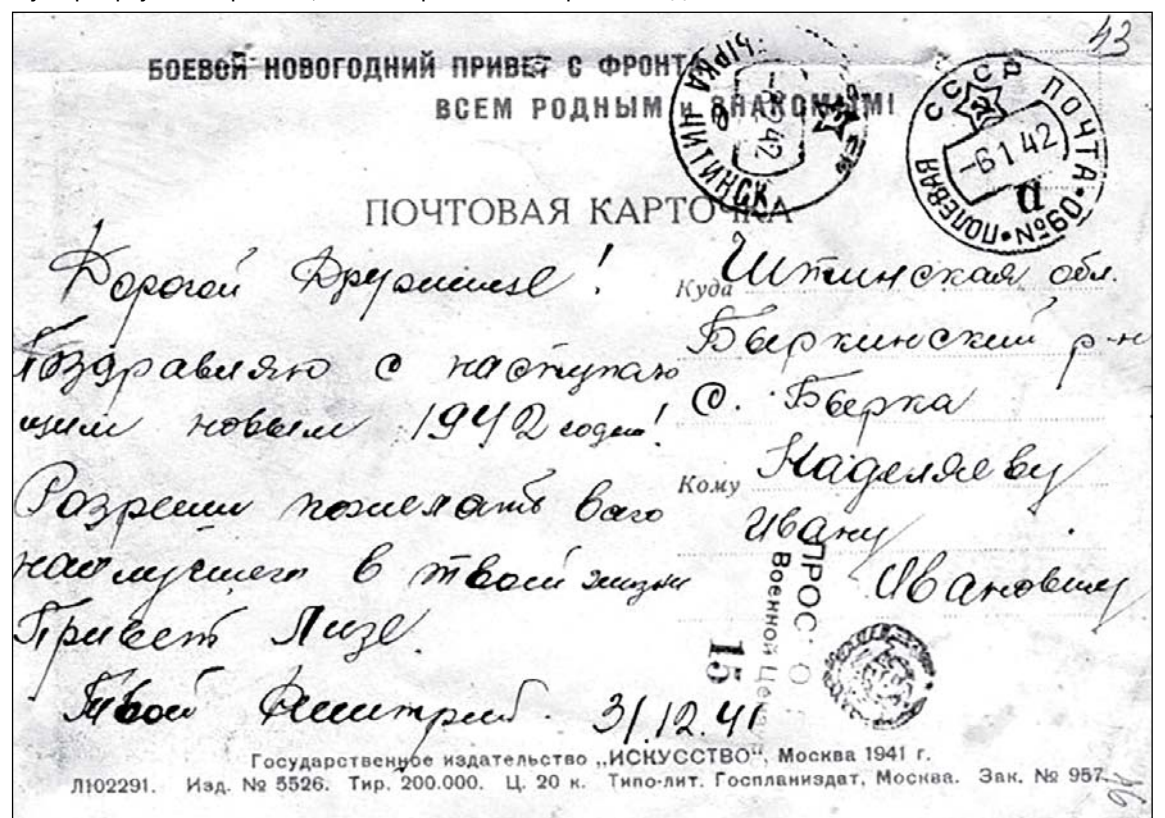 43
БОЕВОЙ НОВОГОДНИЙ ПРИВЕТ С ФРОНТА
ВСЕМ РОДНЫМ и ЗНАКОМЫМ!
ПОЧТОВАЯ КАРТОЧКА
БЫРКА ЧИТИНСК
42
СССР
ПОЧТА • №60 • ПОЛЕВАЯ
-6 1 42
п
Дорогой Дружище!
Поздравляю с наступаю
щим новым 1942 годом!
Разреши пожелать всего
наилучшего в твоей жизни
Привет Лизе.
Твой Дмитрий. 31.12.41
Куда Читинская обл.
Быркинский р-н
с. Бырка
Кому Наделяеву
Ивану
Ивановичу
ПРОС
Военной Це
15
Государственное издательство „ИСКУССТВО", Москва 1941 г.
Л102291. Изд. № 5526. Тир. 200.000. Ц. 20 к. Типо-лит. Госпланиздат, Москва. Зак. № 957.